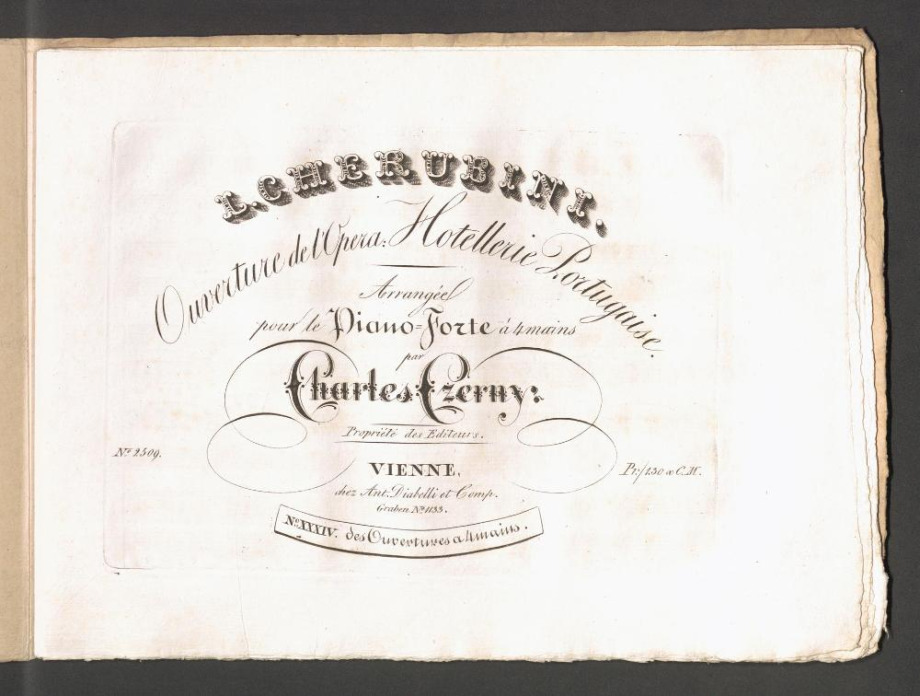 L. CHERUBINI.
Ouverture de l'Opera: Hotellerie Portugaise.
Arrangée
pour le Piano=Forte à 4 mains
par
Charles Czerny:
Propriété des Editeurs.
Nº 2509.
VIENNE,
Pr: f 1.30 x C.M.
chez Ant: Diabelli et Comp.
Graben Nº 1133.
Nº XXXIV. des Ouvertures a 4 mains.